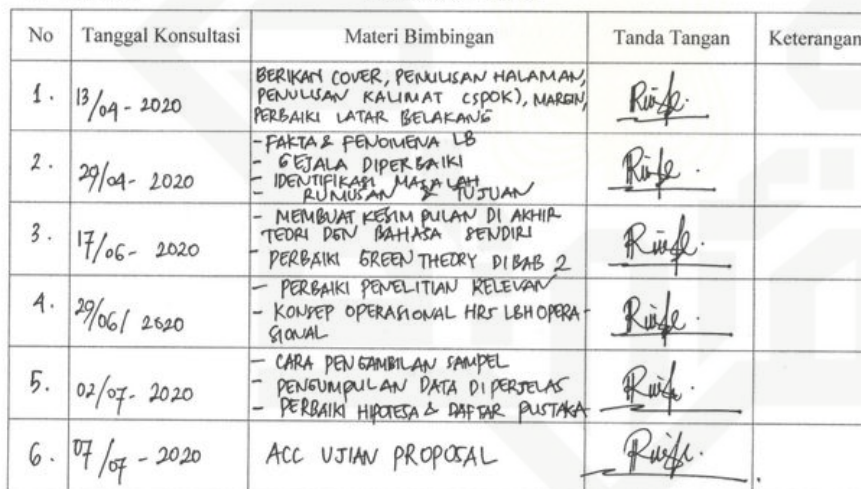 No Tanggal Konsultasi Materi Bimbingan Tanda Tangan Keterangan
1. 13/04 - 2020 BERIKAN COVER, PENULISAN HALAMAN,
PENULISAN KALIMAT (SPOK), MARGIN,
PERBAIKI LATAR BELAKANG
2. 29/04 - 2020 - FAKTA & FENOMENA LB
- GEJALA DIPERBAIKI
- IDENTIFIKASI MASALAH
- RUMUSAN & TUJUAN
3. 17/06 - 2020 - MEMBUAT KESIMPULAN DI AKHIR
TEORI DGN BAHASA SENDIRI
- PERBAIKI GREEN THEORY DI BAB 2
4. 29/06/ 2020 - PERBAIKI PENELITIAN RELEVAN
- KONSEP OPERASIONAL HRS LBH OPERA-
SIONAL
5. 02/07 - 2020 - CARA PENGAMBILAN SAMPEL
- PENGUMPULAN DATA DIPERJELAS
- PERBAIKI HIPOTESA & DAFTAR PUSTAKA
6. 07/07 - 2020 ACC UJIAN PROPOSAL